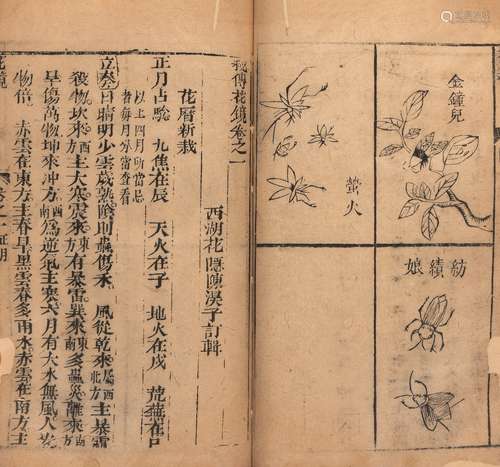 金鐘兒
螢火
紡績娘
秘傳花鏡卷之一
西湖花隱陳淏子訂輯
花曆新栽
正月占驗 九焦在辰 天火在子 地火在戌 荒蕪在巳
以上四月所當忌
者每月分當查看
立春日晴明少雲歲熟陰則蟲傷禾 風從乾來屬西北方主暴霜
殺物坎來北方主大寒震來東方有暴雷巽來東南多蟲災離來南方主
旱傷萬物坤來西南冲方為逆氣主寒六月有大水無風人安
物倍 赤雲在東方主春旱黑雲春多雨水赤雲在南方主
花鏡